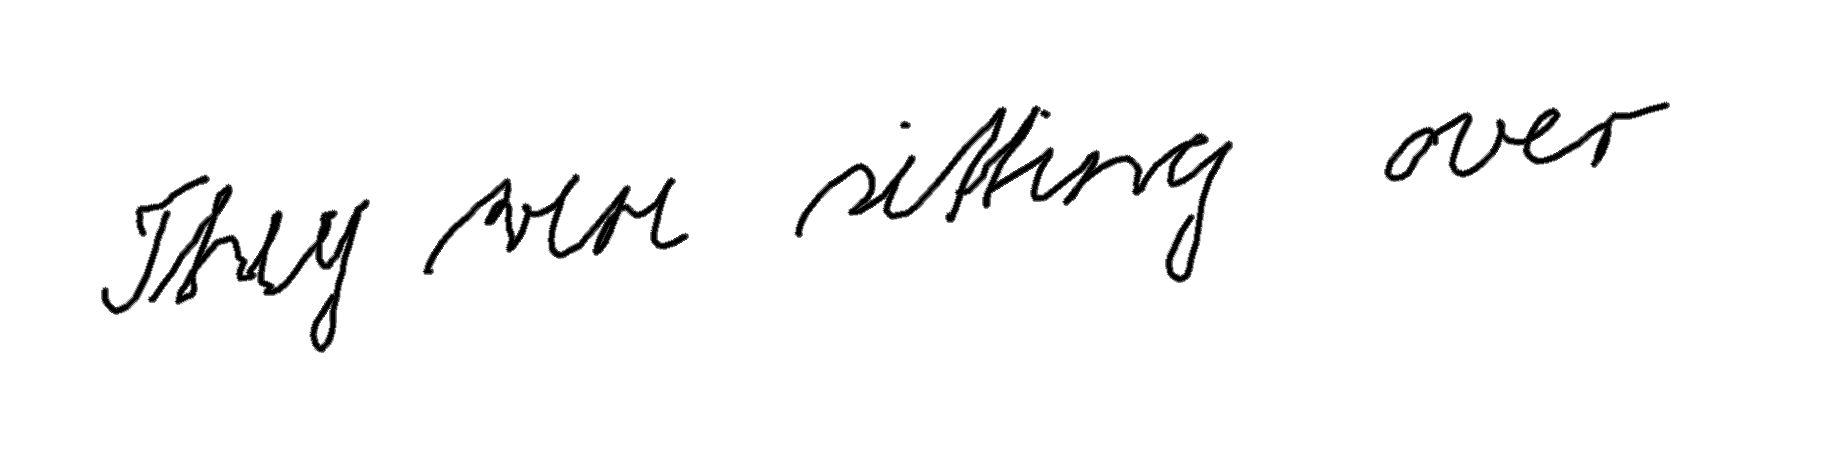 They were sitting over